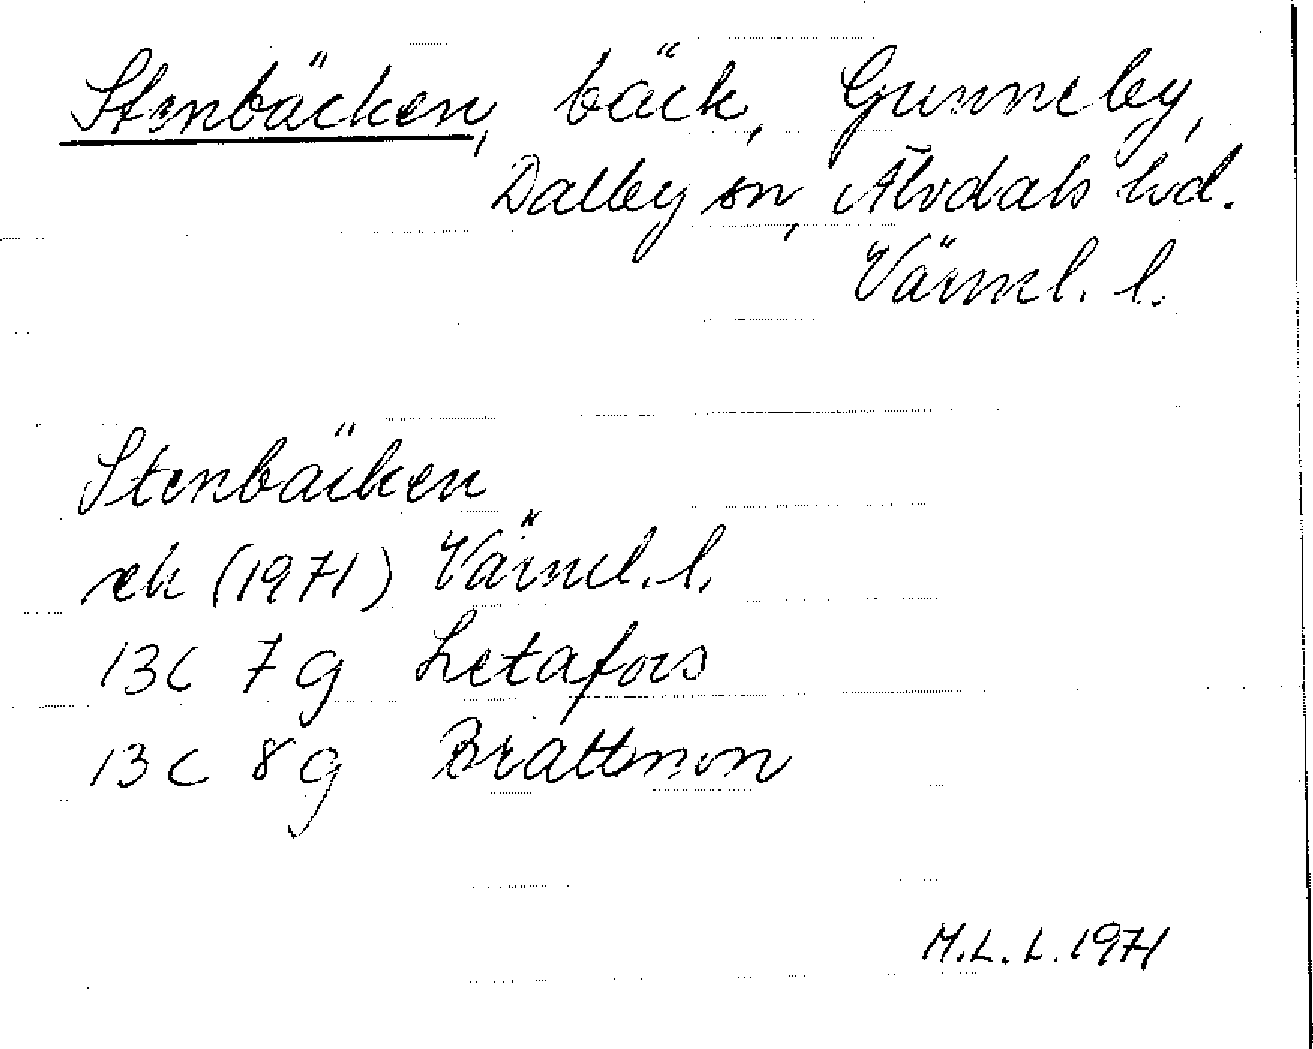 Stenbäcken, bäck, Gunneby,
Dalby sn, Älvdals hd.
Värml. l.
Stenbäcken
ek (1971) Värml. l.
13C 7g Letafors
13C 8g Brattmon
M.L.L. 1971